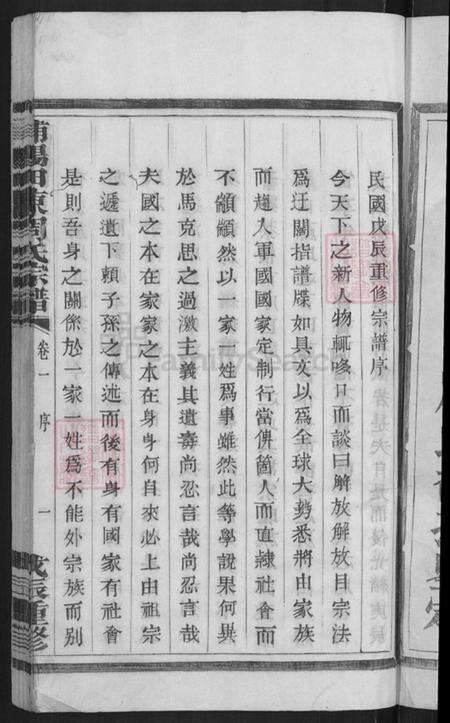 民國戊辰重修宗譜序
今天下之新人物輒喙口而談曰解放解放目宗法
為迂闊指譜牒如具文以為全球大勢悉將由家族
而趨入軍國國家定制行當俾箇人而直隸社會而
不顓顓然以一家一姓為事雖然此等學說果何異
於馬克思之過激主義其遺毒尚忍言哉尚忍言哉
夫國之本在家家之本在身身何自來必上由祖宗
之遞遺下賴子孫之傳述而後有身有國家有社會
是則吾身之關係於一家一姓為不能外宗族而別
浦陽田東周氏宗譜 卷一 序 一 戊辰重修
FamilySearch